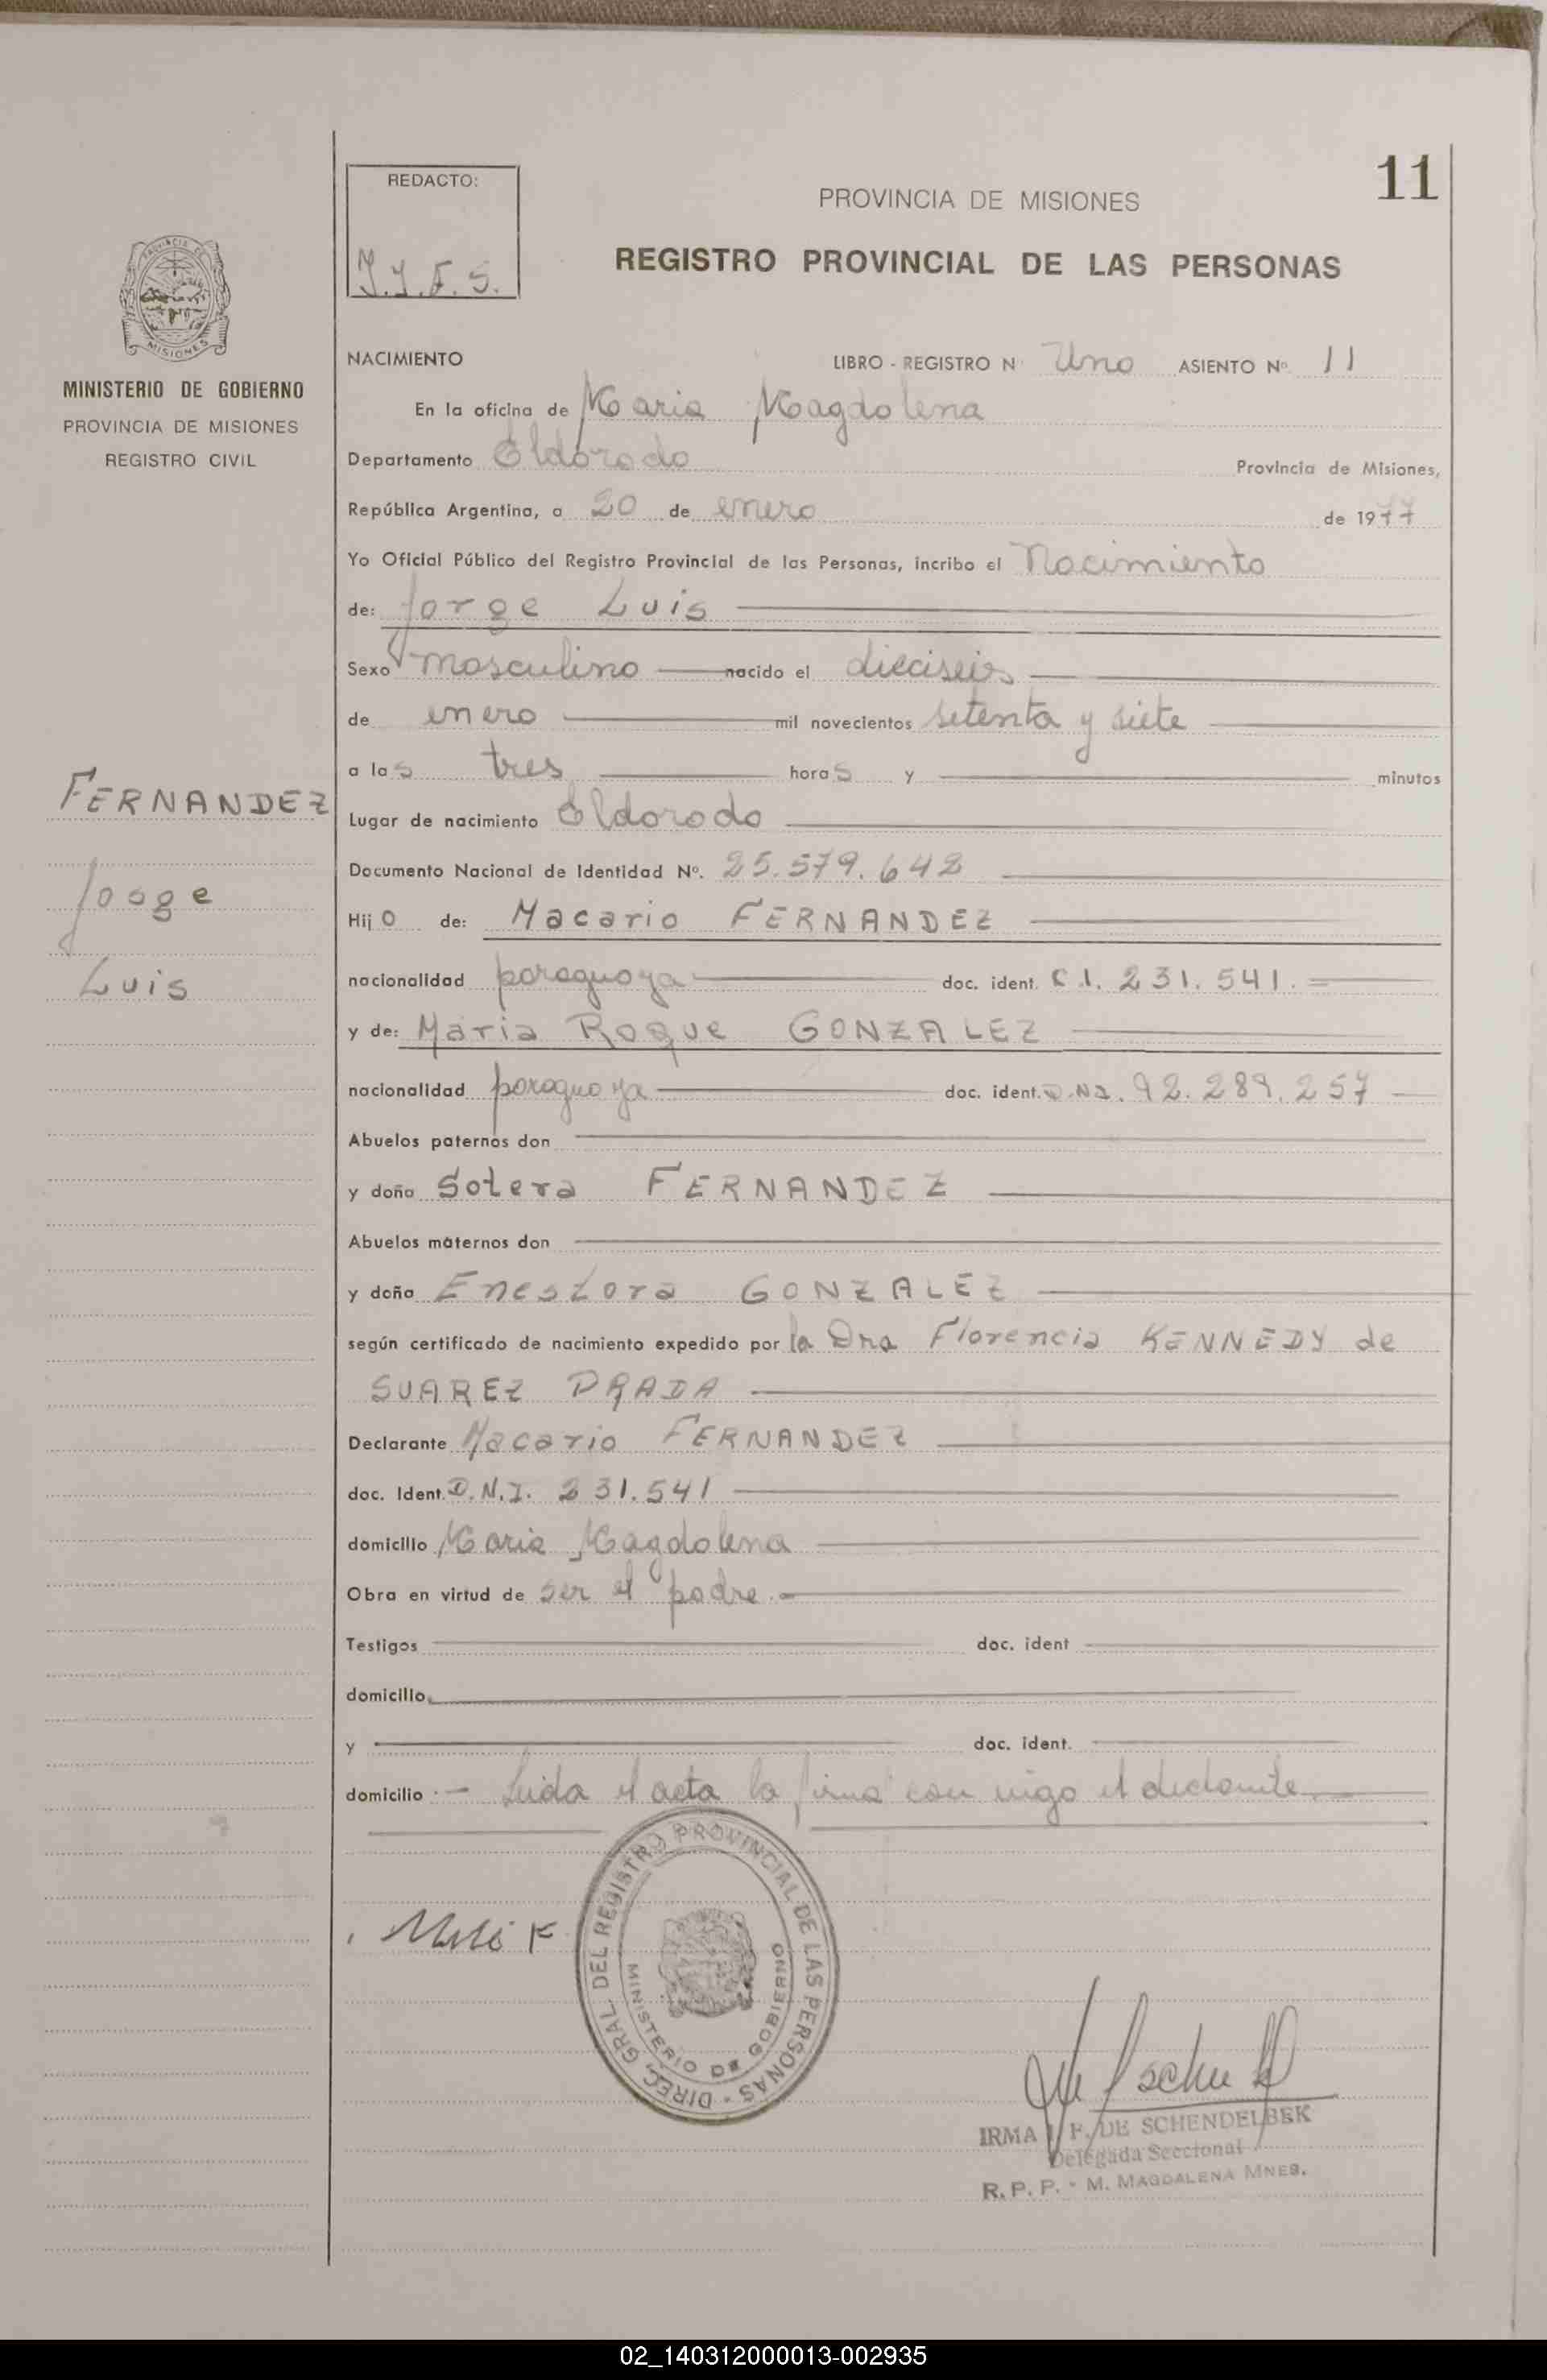 11
REDACTO:
PROVINCIA DE MISIONES
REGISTRO PROVINCIAL DE LAS PERSONAS
MISIONES
MINISTERIO DE GOBIERNO
PROVINCIA DE MISIONES
REGISTRO CIVIL
NACIMIENTO LIBRO - REGISTRO N Uno ASIENTO Nº 11
En la oficina de Maria Magdalena
Departamento Eldorado Provincia de Misiones,
República Argentina, a 20 de enero de 1977
Yo Oficial Público del Registro Provincial de las Personas, incribo el Nacimiento
de: Jorge Luis
Sexo masculino nacido el dieciseis
de enero mil novecientos setenta y siete
a las tres horas y minutos
FERNANDEZ
Jorge
Luis
Lugar de nacimiento Eldorado
Documento Nacional de Identidad Nº. 25.579.642
Hijo de: Macario FERNANDEZ
nacionalidad paraguaya doc. ident. C.I. 231.541.
y de: Maria Roque GONZALEZ
nacionalidad paraguaya doc. ident. D.NI. 92.289.257
Abuelos paternos don
y doña Sotera FERNANDEZ
Abuelos maternos don
y doña Enestora GONZALEZ
según certificado de nacimiento expedido por la Dra Florencia KENNEDY de
SUAREZ PRADA
Declarante Macario FERNANDEZ
doc. Ident. D.N.I. 231.541
domicilio Maria Magdalena
Obra en virtud de ser el padre.
Testigos doc. ident
domicilio
y doc. ident.
domicilio Leida el acta la firma con migo el declarante
DIREC. GRAL. DEL REGISTRO PROVINCIAL DE LAS PERSONAS -
MINISTERIO DE GOBIERNO
IRMA F. DE SCHENDELBEK
Delegada Seccional
R. P. P. - M. MAGDALENA MNES.
02_140312000013-002935